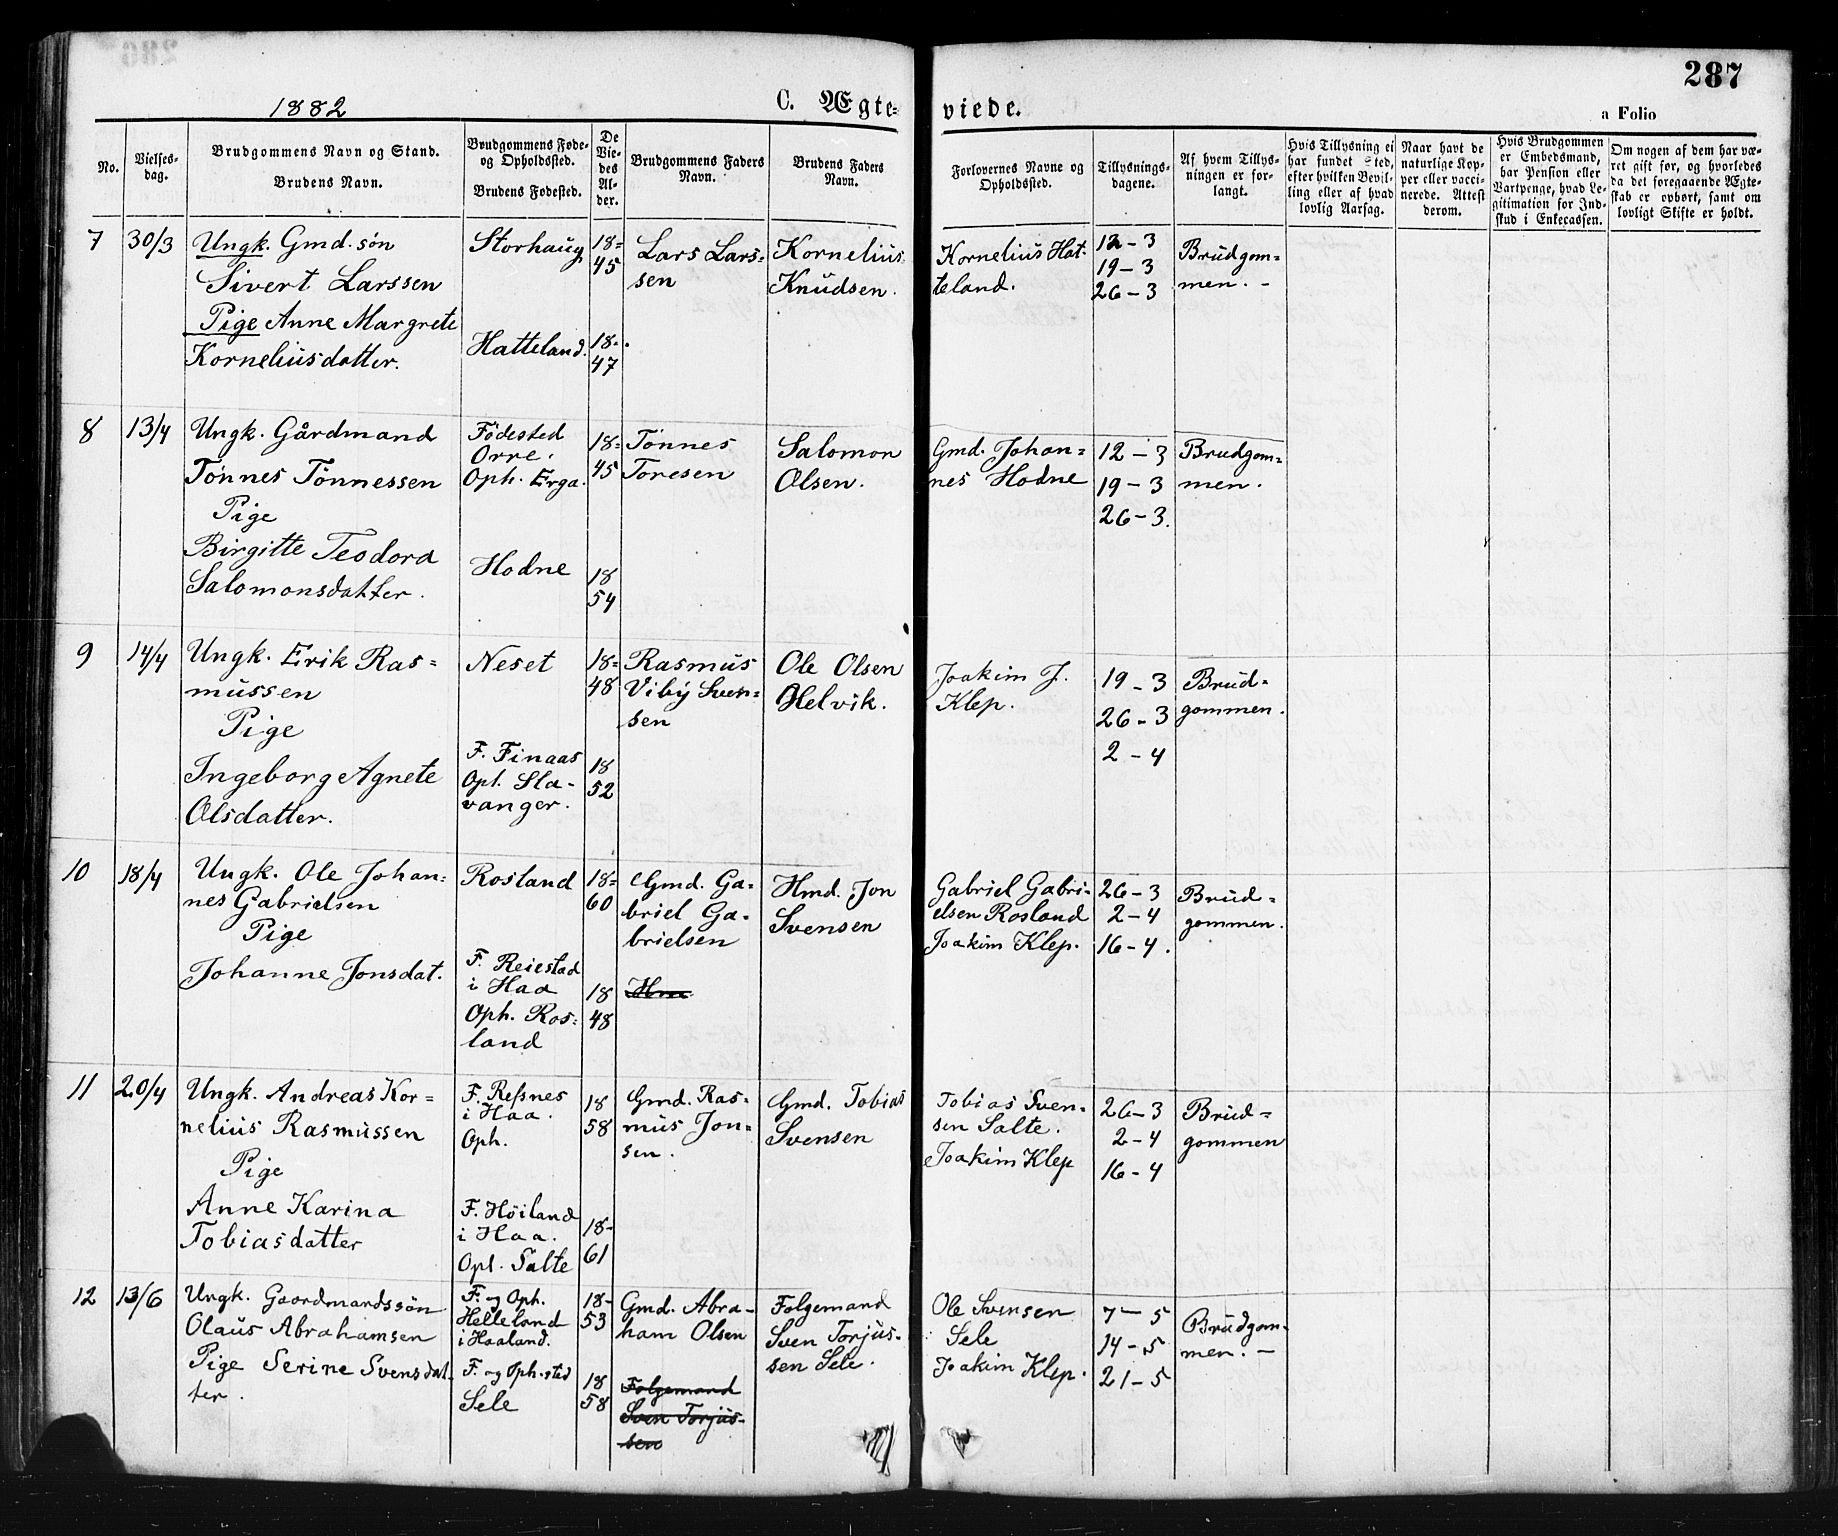 287
1882
C. Ægte=
viede.
a Folio
No.
Vielses-
dag.
Brudgommens Navn og Stand.
Brudens Navn.
Brudgommens Føde-
og Opholdssted.
Brudens Fødested.
De
Vie-
des
Al-
der.
Brudgommens Faders
Navn.
Brudens Faders
Navn.
Forlovernes Navne og
Opholdssted.
Tillysnings-
dagene.
Af hvem Tillys-
ningen er for-
langt.
Hvis Tillysning ei
har fundet Sted,
efter hvilken Bevil-
ling eller af hvad
lovlig Aarsag.
Naar havt de
naturlige Kop-
per eller vacci-
nerede. Attest
derom.
Hvis Brudgommen
er Embedsmand,
har Pension eller
Vartpenge, hvad Le-
gitimation for Ind-
skud i Enkecassen.
Om nogen af dem har væ-
ret gift før, og hvorledes
da det foregaaende Ægte-
skab er ophørt, samt om
lovligt Skifte er holdt.
7
30/3
Ungk. Gmd. søn
Sivert Larssen
Pige Anne Margrete
Korneliusdatter.
Storhaug
Hatteland.
18=
45
18-
47
Lars Lars=
sen
Kornelius
Knudsen.
Kornelius Hat-
teland.
12-3
19-3
26-3
Brudgom=
men. -
8
13/4
Ungk. Gårdmand
Tønnes Tønnessen
Pige
Birgitte Teodora
Salomonsdatter.
Födested
Orre.
Oph. Erga.
Hodne
18=
45
18
54
Tønnes
Toresen
Salomon
Olsen.
Gmd. Johan=
nes Hodne
12-3
19-3
26-3.
Brudgom=
men.
9
14/4
Ungk. Erik Ras=
mussen
Pige
Ingeborg Agnete
Olsdatter.
Neset
F. Finaas
Opt. Sta-
vanger.
18=
48
18
52
Rasmus
Viby Sven=
sen
Ole Olsen
Helvik.
Joakim J.
Klep.
19-3
26-3
2-4
Brud=
gommen.
10
18/4
Ungk. Ole Johan=
nes Gabrielsen
Pige
Johanne Jonsdat.
Rosland
F. Reiestad
i Haa
Oph. Ros=
land
18=
60
18
48
Gmd. Ga-
briel Ga-
brielsen
Hmd. Jon
Svensen
Gabriel Gabri-
elsen Rosland
Joakim Klep.
26-3
2-4
16-4.
Brud=
gommen.
11
20/4
Ungk. Andreas Kor=
nelius Rasmussen
Pige
Anne Karina
Tobiasdatter
F. Refsnes
i Haa.
Oph.
F. Høiland
i Haa.
Opl. Salte
18
58
18-
61
Gmd. Ras-
mus Jon=
sen.
Gmd. Tobias
Svensen
Tobias Sven-
sen Salte.
Joakim Klep
26-3
2-4
16-4
Brud=
gommen
12
13/6
Ungk. Gaardmandssøn
Olaus Abrahamsen
Pige Serine Svensdat-
ter.
F. og Oph.
Helleland
i Haaland.
F. og Oph.sted
Sele
18-
53
18
58
Gmd. Abra-
ham Olsen
Folgemand
Sven Torjus-
sen
Folgemand
Sven Torjus-
sen Sele.
Ole Svensen
Sele
Joakim Klep.
7-5
14-5
21-5
Brudgom-
men. -